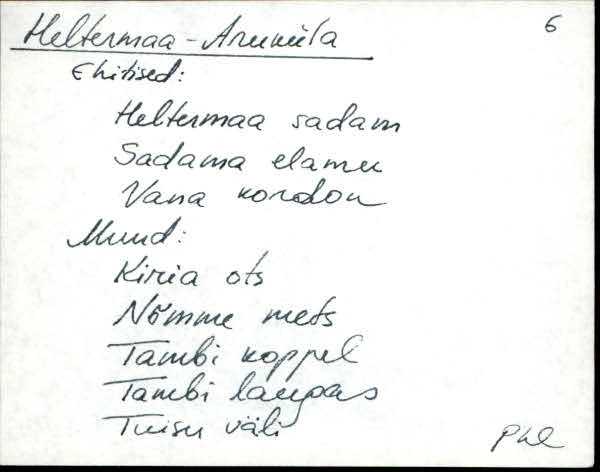 6
Heltermaa - Aruküla
Ehitised:
Heltermaa sadam
Sadama elamu
Vana kordon
Muud:
Kiria ots
Nõmme mets
Tambi koppel
Tambi laugas
Tuisu väli
Phl